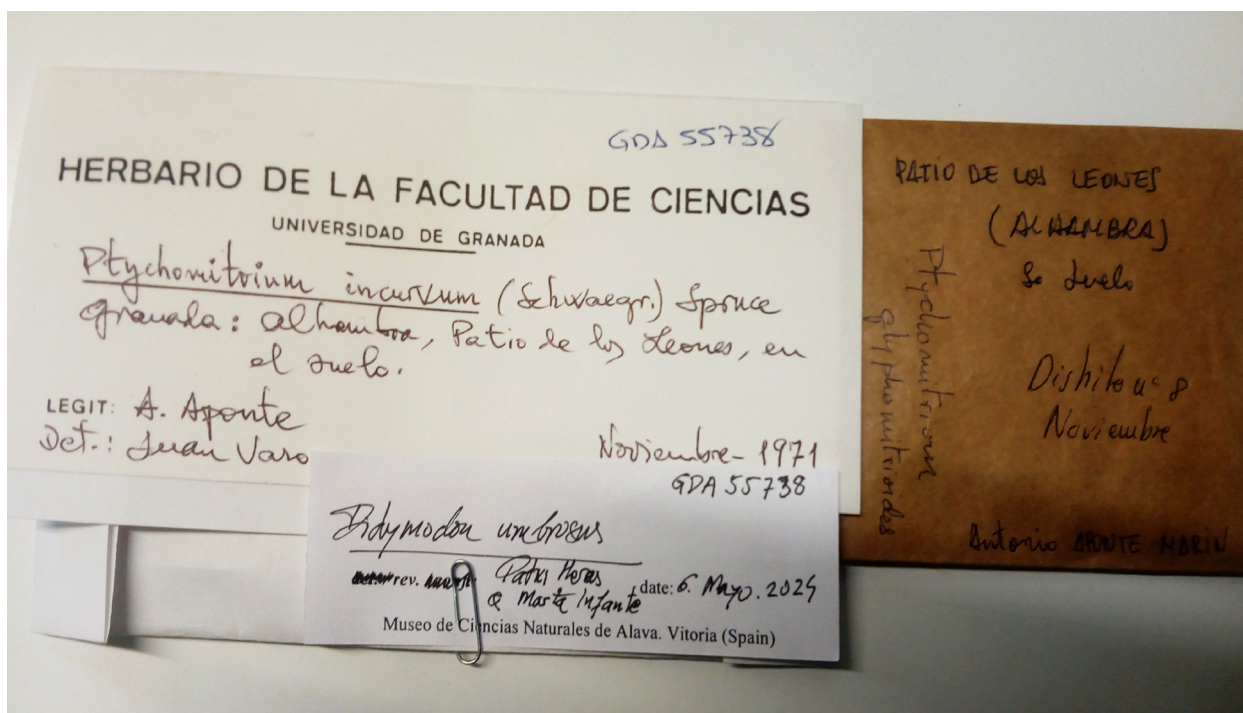 GDA 55738
HERBARIO DE LA FACULTAD DE CIENCIAS
UNIVERSIDAD DE GRANADA
Ptychomitrium incurvum (Schwaegr.) Spruce
Granada: Alhambra, Patio de los Leones, en
el suelo.
LEGIT: A. Aponte
Det.: Juan Varo
Noviembre - 1971
GDA 55738
Didymodon umbrosus
rev. Patxi Heras
& Marta Infante
date: 6. Mayo. 2024
Museo de Ciencias Naturales de Alava. Vitoria (Spain)
PATIO DE LOS LEONES
(ALHAMBRA)
So suelo
Ptychomitrium
glyphomitrioides
nº 8
Noviembre
Antonio APONTE MARIN